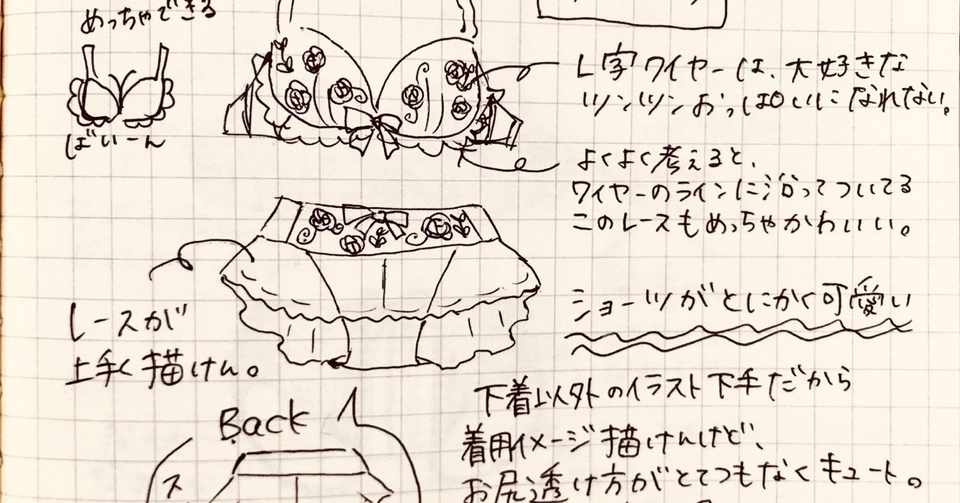 めっちゃできる
ばいーん
L字ワイヤーは、大好きな
ツンツンおっぱいになれない。
よくよく考えると、
ワイヤーのラインに沿ってついてる
このレースもめっちゃかわいい。
ショーツがとにかく可愛い
レースが
上手く描けん。
下着以外のイラスト下手だから
着用イメージ描けんけど、
お尻透け方がとてつもなくキュート。
Back
ス